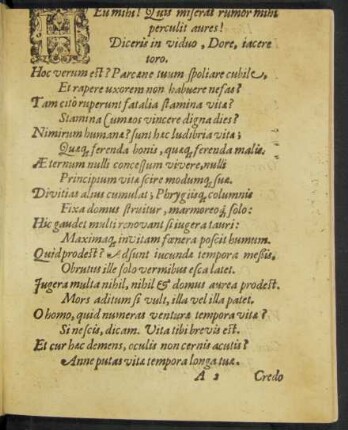 HEu mihi! Quis miseras rumor mihi
perculit aures!
Diceris in viduo, Dore, iacere
toro.
Hoc verum est? Parcæne tuum spoliare cubile,
Et rapere uxorem non habuere nefas?
Tam citò ruperunt fatalia stamina vitæ?
Stamina Cumæos vincere digna dies?
Nimirum humanæ sunt hæc ludibria vitæ;
Quæq, ferenda bonis, quæq, ferenda malis.
Æternum nulli concessum vivere, nulli
Principium vitæ scire modumq, suæ.
Divitias alius cumulat; Phrygiisq, columnis
Fixa domus struitur, marmoreoq́ solo:
Hic gaudet multi renovant si iugera tauri:
Maximaq, invitam fœnera poscit humum.
Quid prodest? Adsunt iucundæ tempora messis,
Obrutus ille solo vermibus esca latet.
Jugera multa nihil, nihil & domus aurea prodest.
Mors aditum si vult, illa vel illa patet.
O homo, quid numeras venturæ tempora vitæ?
Si nescis, dicam. Vita tibi brevis est.
Et cur hæc demens, oculis non cernis acutis?
Anne putas vitæ tempora longa tuæ.
A 2 Credo